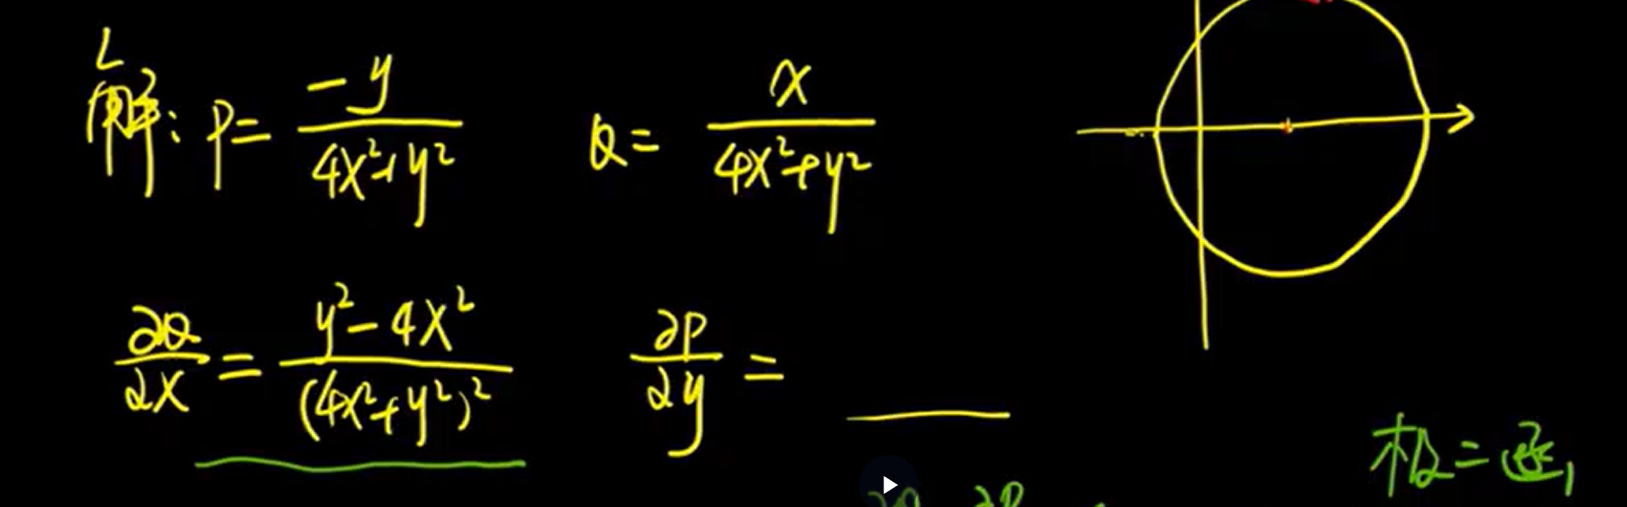 L
解: P= -y/(4x²+y²) Q= x/(4x²+y²)
∂Q/∂x = (y²-4x²)/(4x²+y²)² ∂P/∂y =